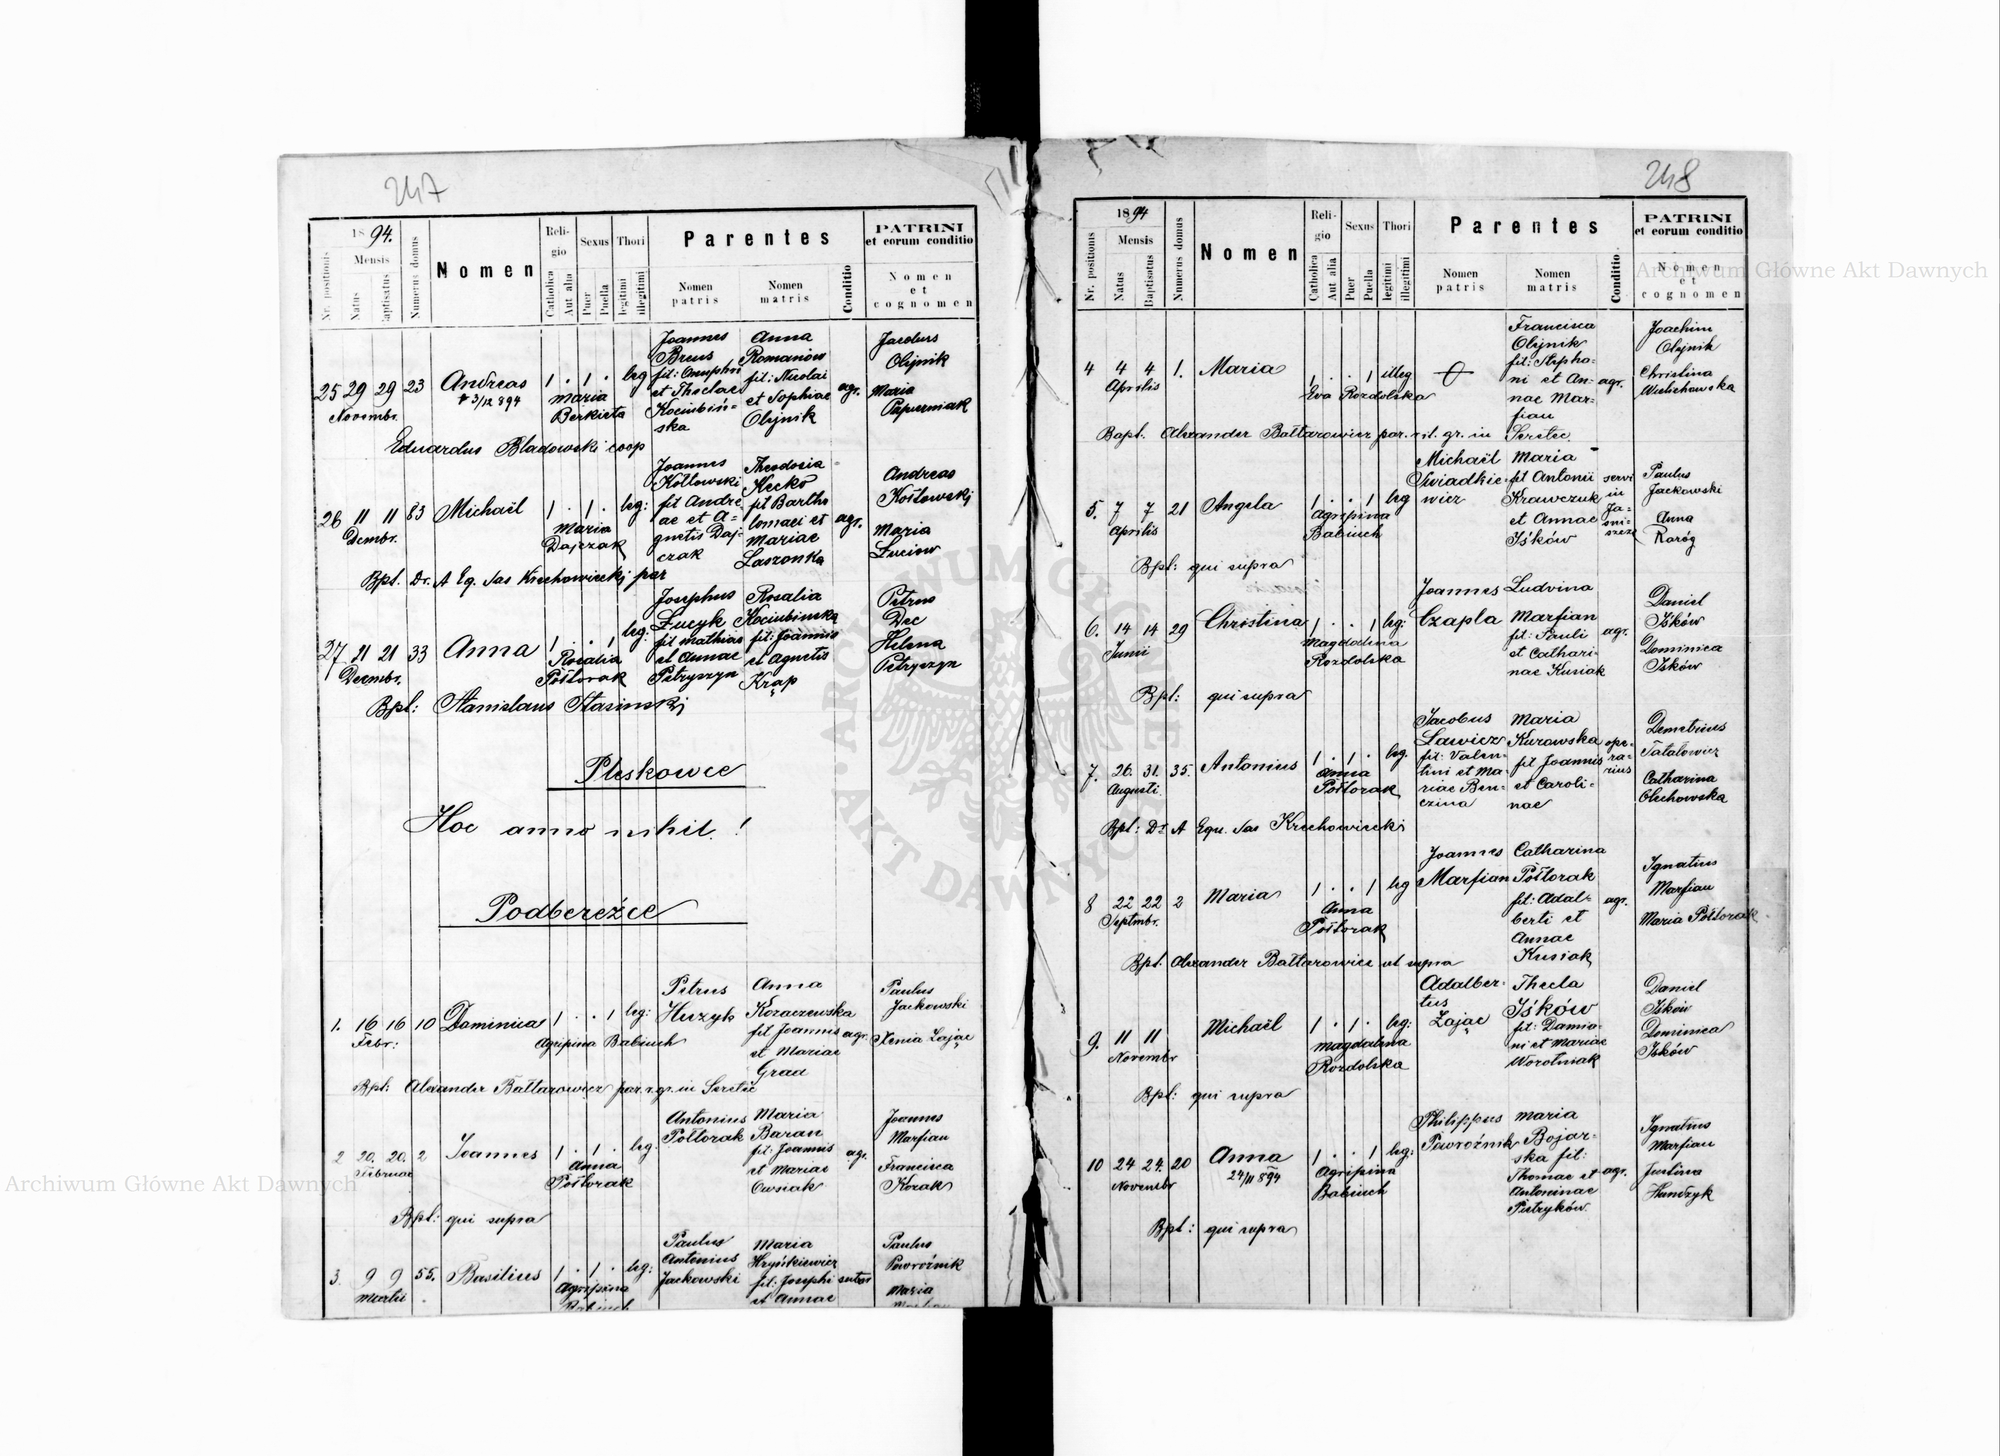 247
1894.
Nr. positionis
Mensis
Natus
Baptisatus
Numerus domus
Nomen
Religio
Catholica
Aut alia
Sexus
Puer
Puella
Thori
legitimi
illegitimi
Parentes
Nomen patris
Nomen matris
Conditio
PATRINI
et eorum conditio
Nomen
et
cognomen
Joannes Anna Jacobus
Breus Romanów Olijnik
fil: Onuphri fil: Nicolai
25 29 29 23 Andreas 1 . 1 . leg et Theclae et Sophiae agr. Maria
Novembr. + 3/12 894 Maria Kociubiń- Olijnik
Berkieta ska
Eduardus Bladowski coop
Joannes Theodosia Andreas
Kotlowski Kecko Kozlowskj
fil Andre fil Bartho
26 11 11 83 Michaël 1 . 1 . leg: ae et A= lomaei et agr. Maria
Dcmbr. Maria gnetis Daj- Mariae Łuciow
Dajczak czak Laszonka
Bpt. Dr. A Eq. Jas Krechowieckj par
Josephus Rosalia Petrus
Łucyk Kociubinska Dec
27 21 21 33 Anna 1 . . 1 leg: fil Mathias fil: Joannis Helena
Decmbr. Rosalia et Annae et Agnetis Petryszyn
Półtorak Petryszyn Krąp
Bpt: Stanislaus Stasinskj
Pleskowce
Hoc anno nihil !
Podbereźce
Petrus Anna Paulus
Huzyk Kozaczewska Jackowski
1. 16 16 10 Dominica 1 . . 1 leg: fil Joannis agr. Xenia Zając
Febr: Agripina Babiuch et Mariae
Grad
Bpt: Alexander Baltarowicz par. r. gr. in Seretec
Antonius Maria Joannes
Półtorak Baran Marfian
2 20. 20. 2 Joannes 1 . 1 . leg: fil: Joannis agr. Francisca
Februar Anna et Mariae Kozak
Półtorak Owsiak
Bpt: qui supra
Paulus Maria Paulus
Antonius Hryńkiewicz Poworóźnik
3. 9 9 55. Basilius 1 . 1 . leg: Jackowski fil: Josephi sutor Maria
Martii Agripina et Annae
248
1894
Nr. positionis
Mensis
Natus
Baptisatus
Numerus domus
Nomen
Religio
Catholica
Aut alia
Sexus
Puer
Puella
Thori
legitimi
illegitimi
Parentes
Nomen patris
Nomen matris
Conditio
PATRINI
et eorum conditio
Nomen
et
cognomen
Francisca Joachim
Olijnik Olijnik
4 4 4 1. Maria 1 . . 1 illeg fil: Stepha- Christina
Aprilis Eva Rozdolska ni et An- agr.
nae Mar-
fian
Bapt. Alexander Baltarowicz par. rit. gr. in Seretec.
Michaël Maria Paulus
Swiadkie- fil Antonii servi Jackowski
5. 7 7 21 Angela 1 . . 1 leg wicz Krawczuk in Anna
Aprilis Agripina et Annae Ja- Karóg
Babiuch Iśków sni- szcze
Bpt: qui supra
Joannes Ludvina Daniel
Czapla Marfian Iśków
6. 14 14 29 Christina 1 . . 1 leg: fil: Pauli agr. Dominica
Junii Magdalina et Cathari- Iśków
Rozdolska nae Kusiak
Bpt: qui supra
Jacobus Maria Demetrius
Ławicz Kurowska ope- Tatalowicz
7. 26. 31. 35. Antonius 1 . 1 . leg. fil: Valen- fil Joannis ra- Catharina
Augusti Anna tini et Ma- et Caroli- rius Olechowska
Półtorak riae Ben- nae
czina
Bpt: Dr A Equ. Jas Krechowiecki
Joannes Catharina Ignatius
Marfian Półtorak Marfian
8 22 22 2 Maria 1 . . 1 leg fil: Adal- agr. Maria Półtorak
Septmbr. Anna berti et
Półtorak Annae
Kusiak
Bpt. Alexander Baltarowicz ut supra
Adalber- Thecla Daniel
tus Iśków Iśków
9. 11 11 Michaël 1 . 1 . leg: Zając fil: Damia- Dominica
Novembr Magdalina ni et Mariae Iśków
Rozdolska Worotniak
Bpt: qui supra
Philippus Maria Ignatius
Poworoźnik Bojar- Marfian
10 24 24. 20 Anna 1 . . 1 leg: ska fil: Justina
Novembr 24/11 894 Agripina Thomae et agr. Handzyk
Babiuch Antoninae
Pietryków
Bpt: qui supra
Archiwum Główne Akt Dawnych
Archiwum Główne Akt Dawnych
ARCHIWUM GŁÓWNE AKT DAWNYCH